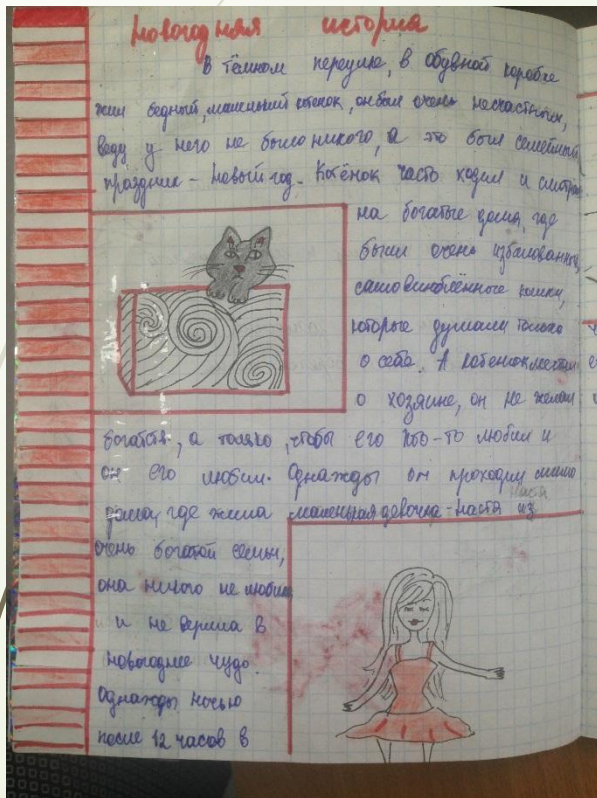 Новогодняя история
В тёмном переулке, в обувной коробке
жил бедный, маленький котенок, он был очень несчастным,
веду у него не было никого, а это был семейный
праздник - Новый год. Котёнок часто ходил и смотрел
на богатые дома, где
были очень избалованные,
самовлюблённые кошки,
которые думали только
о себе. А котенок мечтал
о хозяине, он не желал
богатств, а только, чтобы его кто-то любил и
он его любил. Однажды он проходил мимо
дома, где жила маленькая девочка - Настя из
Настя
очень богатой семьи,
она никого не любила
и не верила в
новогоднее чудо.
Однажды ночью
после 12 часов в